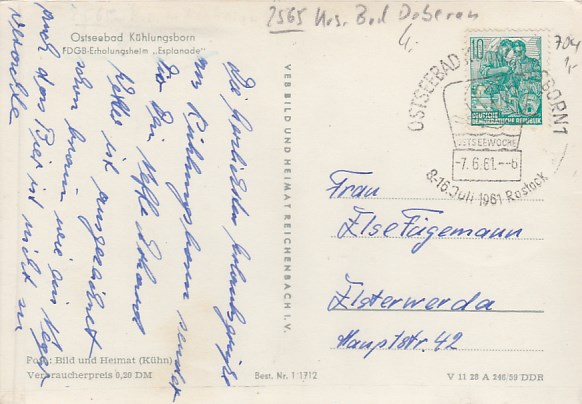 2565 Krs. Bad Doberan
Ostseebad Kühlungsborn
FDGB-Erholungsheim „Esplanade"
Die herzlichsten Urlaubsgrüße
aus Kühlungsborn sendet
Dir Dein Neffe Erhard
Wetter ist ausgezeichnet
schon braun wie ein Neger
auch das Bier ist nicht zu
verachten
Foto: Bild und Heimat (Kühn)
Verbraucherpreis 0,20 DM
VEB BILD UND HEIMAT REICHENBACH I. V.
Best. Nr. 1 1712
10
DEUTSCHE
DEMOKRATISCHE REPUBLIK
704
1,-
OSTSEEBAD
BORN 1
OSTSEEWOCHE
-7.6.61.--6
8-16. Juli 1961 Rostock
Frau
Else Fügemann
Elsterwerda
Hauptstr. 42
V 11 28 A 246/59 DDR